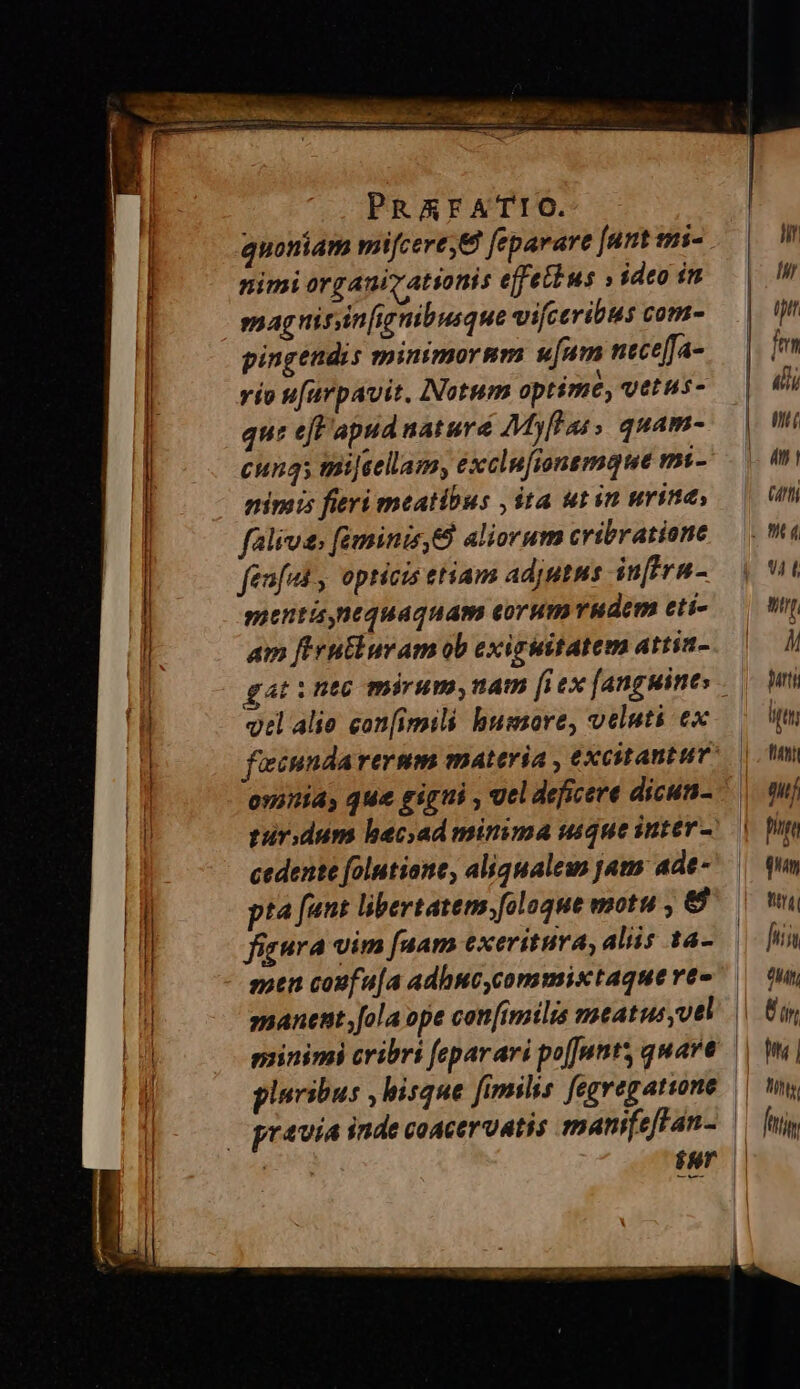 PRÆFATIO.
quoniam miſcere, & ſeparare ſunt mi-
nimi organizationis effectus, ideo in
magnis, inſignibusque viſceribus com-
pingendis minimorum uſum neceſſa-
rio uſurpavit. Notum optime, vetus-
que eſt apud naturæ Myſtas, quam-
cunqȝ miſcellam, excluſionemque mi-
nimis fieri meatibus, ita ut in urinæ,
ſalivæ, ſeminis, & aliorum cribratione
ſenſus, opticis etiam adjutus inſtru-
mentis, nequaquam eorum rudem eti-
am ſtructuram ob exiguitatem attin-
gat: nec mirum, nam ſi ex ſanguine,
vel alio conſimili humore, veluti ex
fœcunda rerum materia, excitantur
omnia, quæ gigni, vel deficere dicun-
tur, dum hæc, ad minima usque inter-
cedente ſolutione, aliqualem jam ade-
pta ſunt libertatem, ſoloque motu, &
figura vim ſuam exeritura, aliis ta-
men confuſa adhuc, commixtaque re-
manent, ſola ope conſimilis meatus, vel
minimi cribri ſeparari poſſunt; quare
pluribus, hisque ſimilis ſegregatione
prævia inde coacervatis manifeſtan-
tur